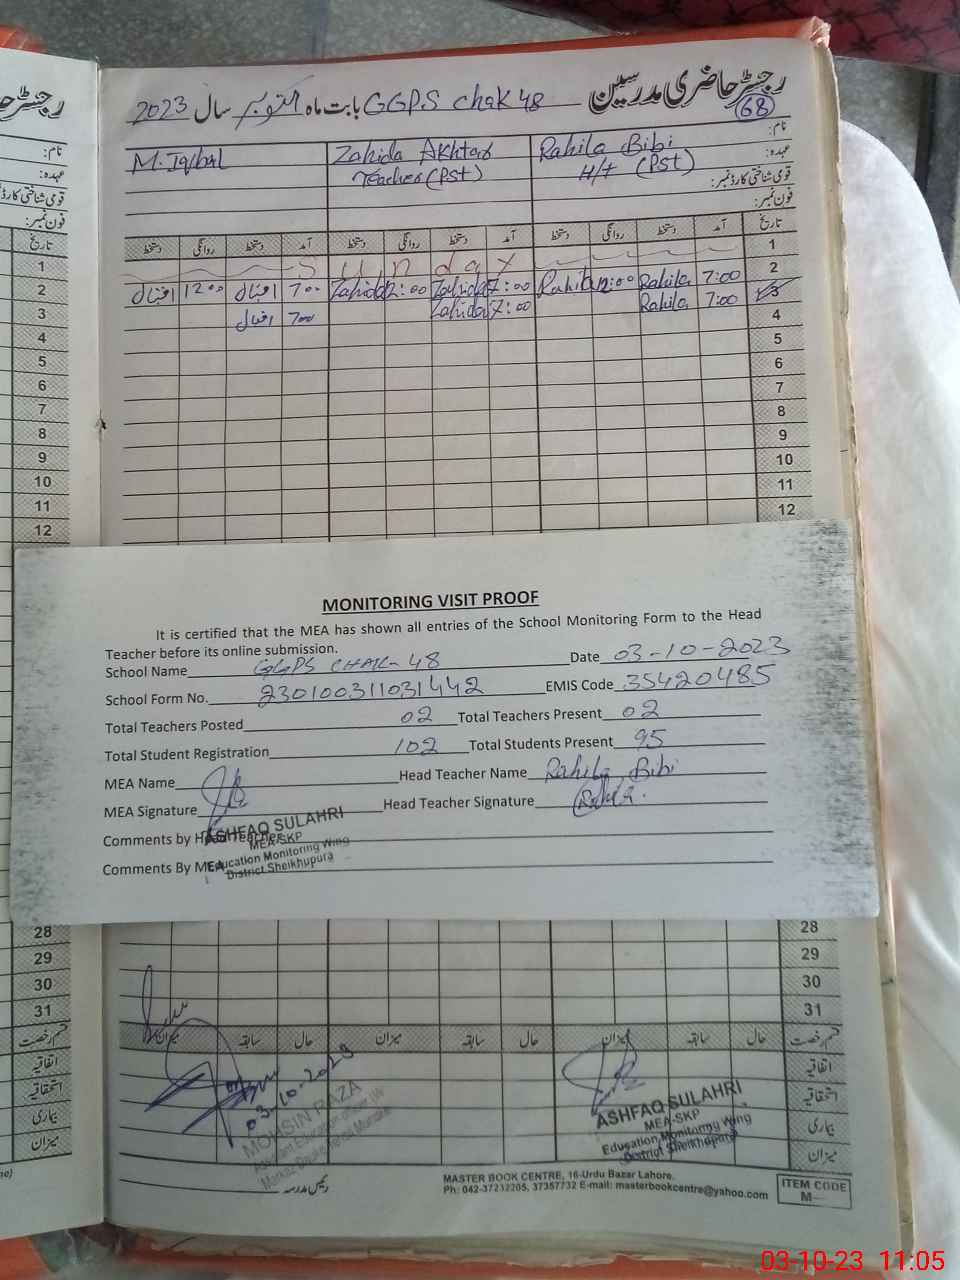 رجسٹر حاضری مدرسین GGPS chak 48 بابت ماہ اکتوبر سال 2023
68
نام:
عہدہ:
قومی شناختی کارڈ نمبر:
فون نمبر:
Rahila Bibi
H/t (PST)
Zahida Akhtar
Teacher (PST)
M. Iqbal
تاریخ آمد دستخط روانگی دستخط آمد دستخط روانگی دستخط آمد دستخط روانگی دستخط تاریخ
1 Sunday 1
2 7:00 Rahila 12:00 Rahila 7:00 Zahida 12:00 Zahida 700 اقبال 1200 اقبال 2
3 7:00 Rahila 7:00 Zahida 700 اقبال 3
4 4
5 5
6 6
7 7
8 8
9 9
10 10
11 11
12 12
MONITORING VISIT PROOF
It is certified that the MEA has shown all entries of the School Monitoring Form to the Head
Teacher before its online submission.
School Name GGPS CHAK-48 Date 03-10-2023
School Form No. 230100311031442 EMIS Code 35420485
Total Teachers Posted 02 Total Teachers Present 02
Total Student Registration 102 Total Students Present 95
MEA Name Head Teacher Name Rahila Bibi
MEA Signature Head Teacher Signature
Comments by Head Teacher
Comments By MEA
ASHFAQ SULAHRI
MEA-SKP
Education Monitoring Wing
District Sheikhupura
28 28
29 29
30 30
31 31
قسم رخصت حال سابقہ میزان حال سابقہ میزان حال سابقہ میزان قسم رخصت
اتفاقیہ اتفاقیہ
استحقاقیہ استحقاقیہ
بیماری بیماری
میزان میزان
03-10-2023
MOHSIN RAZA
Assistant Education Officer
ASHFAQ SULAHRI
MEA-SKP
Education Monitoring Wing
District Sheikhupura
رئیس مدرسہ
MASTER BOOK CENTRE, 16-Urdu Bazar Lahore.
Ph: 042-37232205, 37357732 E-mail: masterbookcentre@yahoo.com
ITEM CODE
M-
03-10-23 11:05